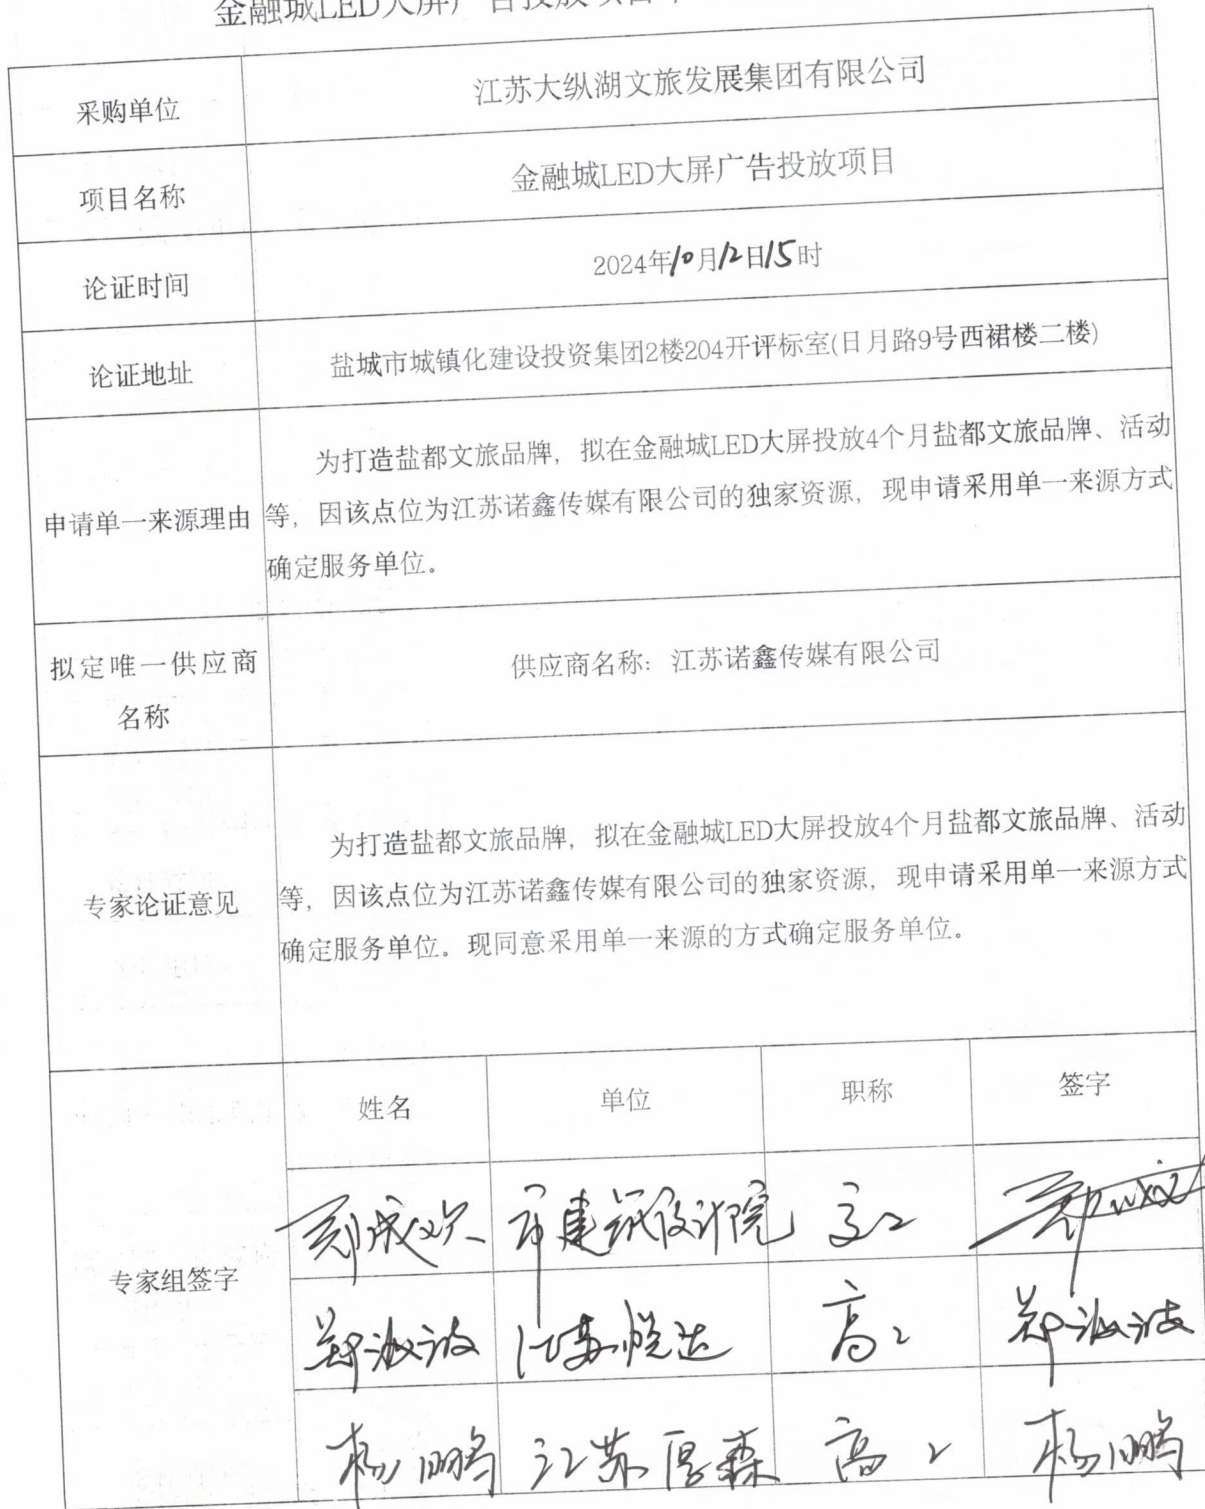 金融城LED大屏广告投放项目
采购单位
江苏大纵湖文旅发展集团有限公司
项目名称
金融城LED大屏广告投放项目
论证时间
2024年10月12日15时
论证地址
盐城市城镇化建设投资集团2楼204开评标室(日月路9号西裙楼二楼)
申请单一来源理由
为打造盐都文旅品牌，拟在金融城LED大屏投放4个月盐都文旅品牌、活动
等，因该点位为江苏诺鑫传媒有限公司的独家资源，现申请采用单一来源方式
确定服务单位。
拟定唯一供应商
名称
供应商名称：江苏诺鑫传媒有限公司
专家论证意见
为打造盐都文旅品牌，拟在金融城LED大屏投放4个月盐都文旅品牌、活动
等，因该点位为江苏诺鑫传媒有限公司的独家资源，现申请采用单一来源方式
确定服务单位。现同意采用单一来源的方式确定服务单位。
专家组签字
姓名 单位 职称 签字
市建筑设计院 高工
江苏悦达 高工
杨鹏 江苏厚森 高工 杨鹏